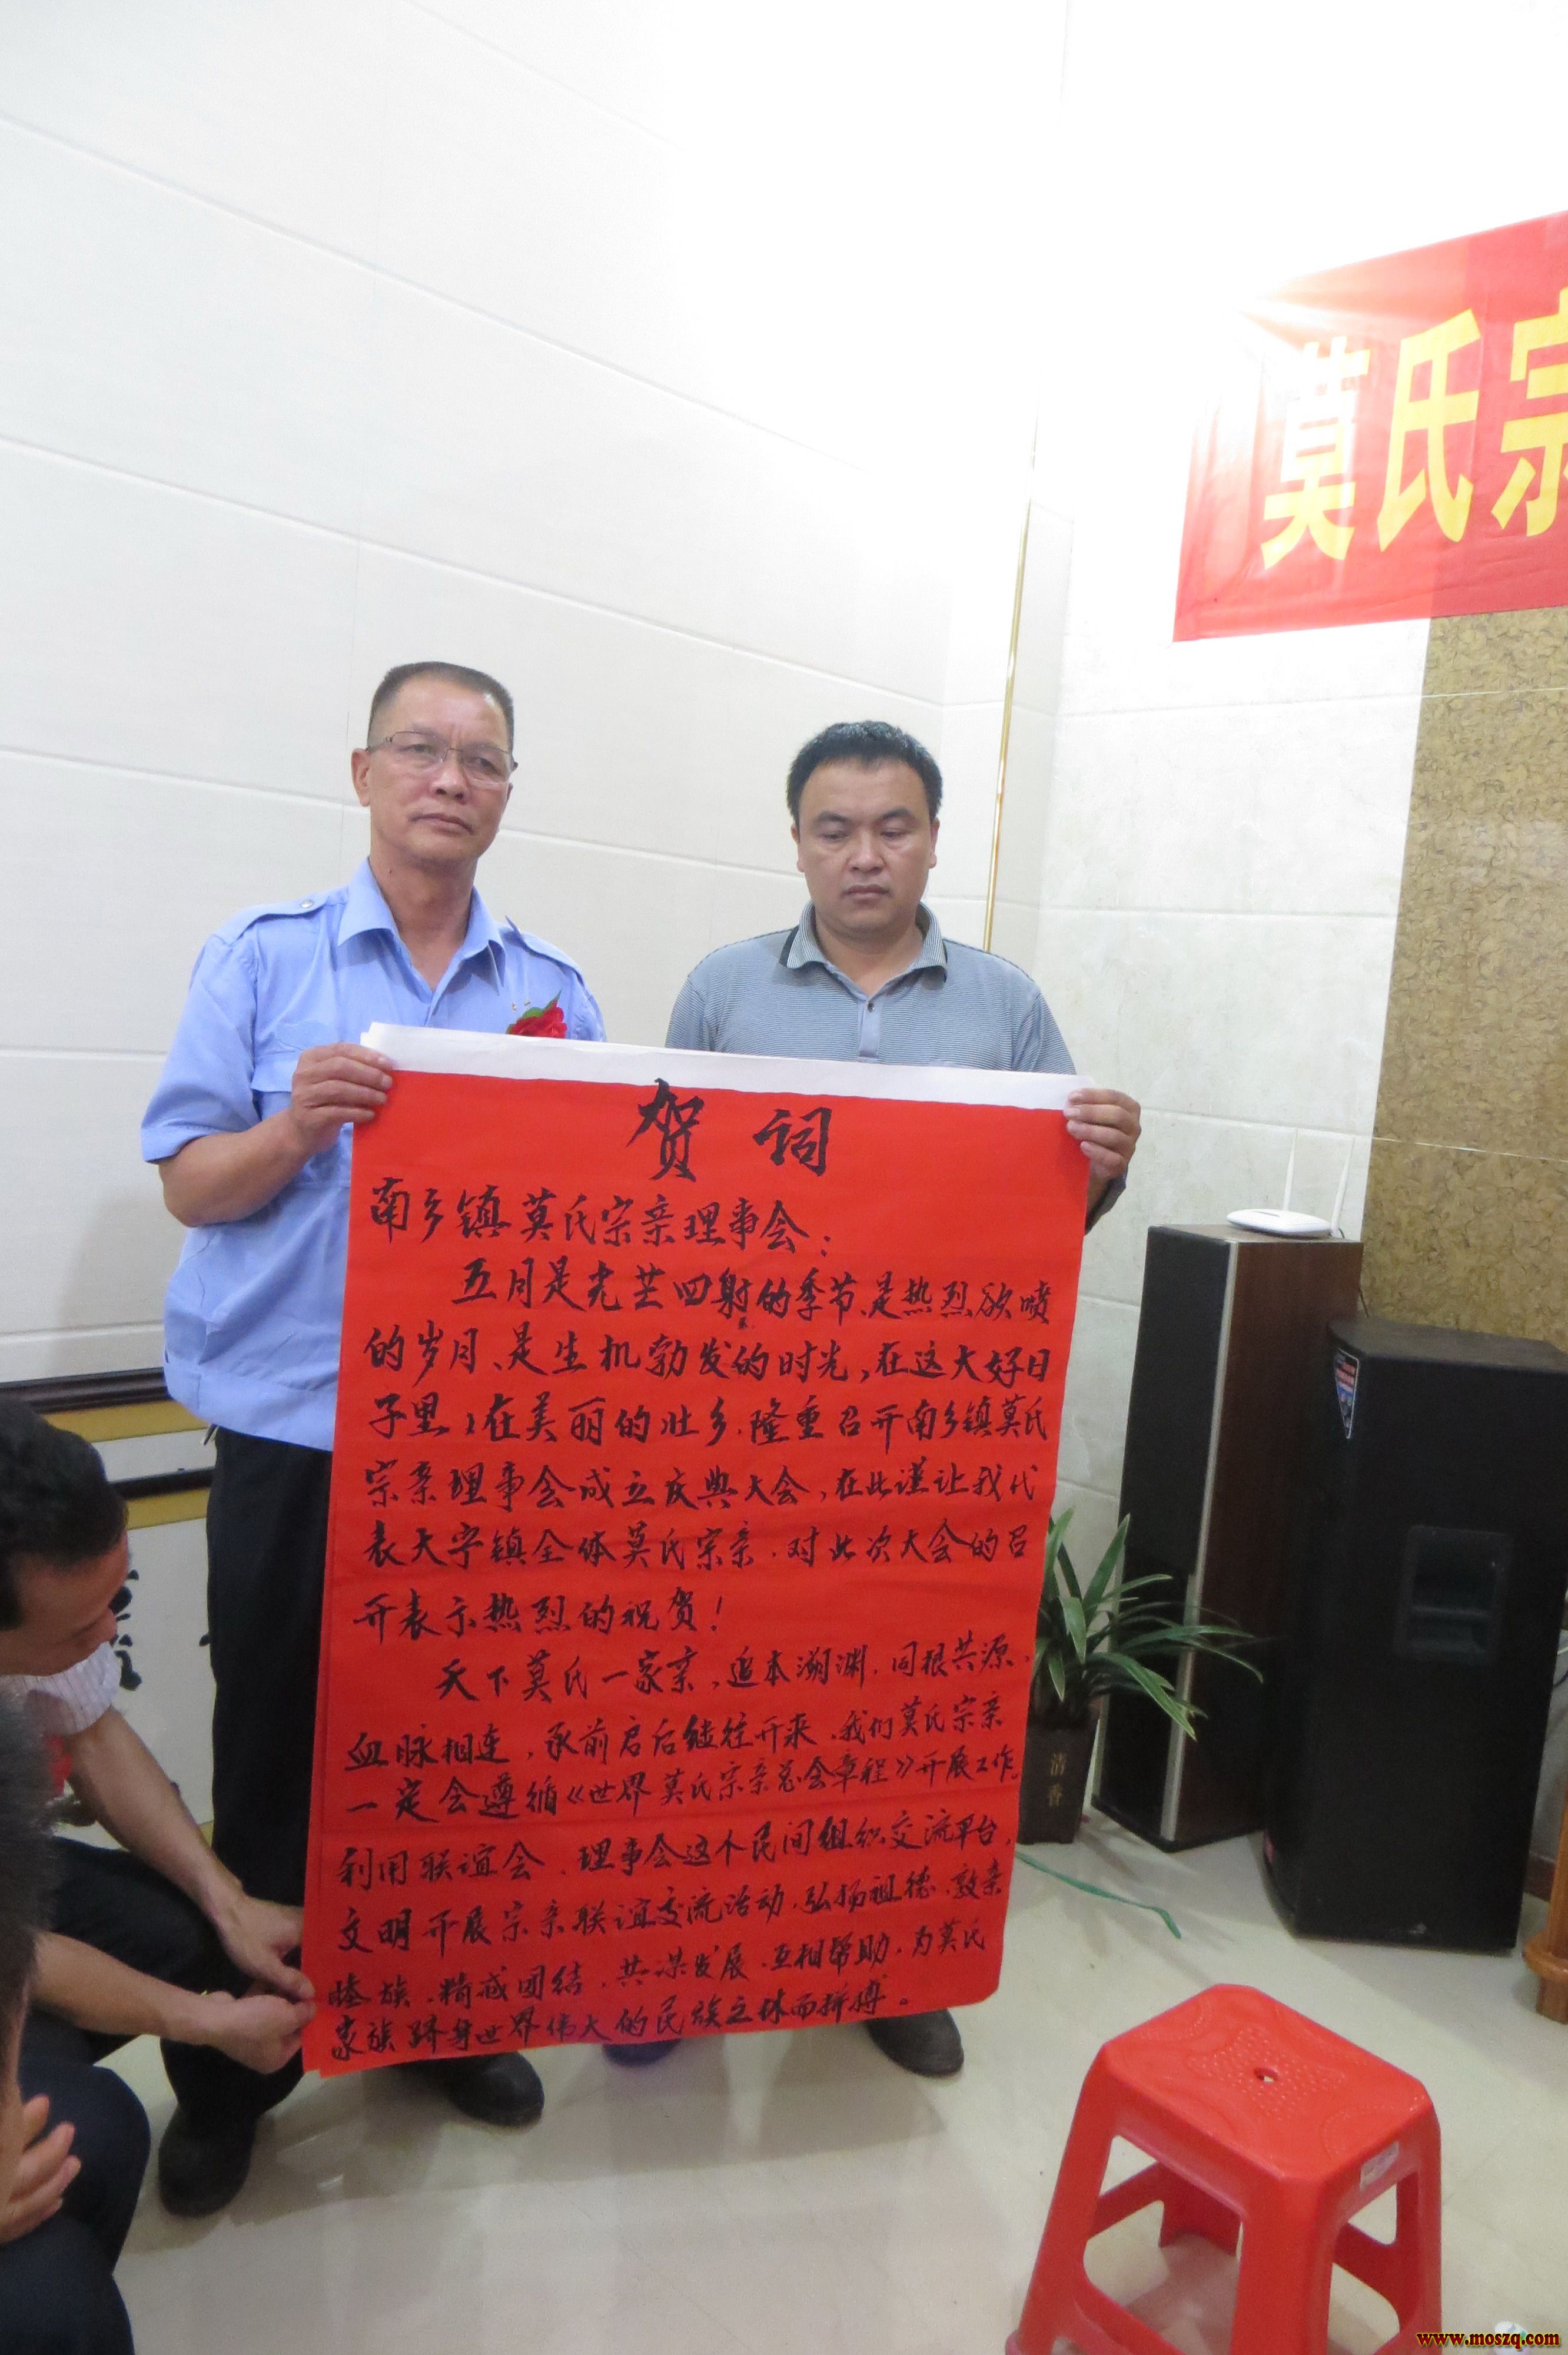 莫氏宗
贺词
南乡镇莫氏宗亲理事会：
五月是光芒四射的季节、是热烈欲喷
的岁月、是生机勃发的时光，在这大好日
子里，在美丽的壮乡，隆重召开南乡镇莫氏
宗亲理事会成立庆典大会，在此谨让我代
表大宁镇全体莫氏宗亲，对此次大会的召
开表示热烈的祝贺！
天下莫氏一家亲，追本溯渊，同根共源，
血脉相连，承前启后继往开来，我们莫氏宗亲
一定会遵循《世界莫氏宗亲总会章程》开展工作。
利用联谊会、理事会这个民间组织交流平台，
文明开展宗亲联谊交流活动，弘扬祖德，敦亲
睦族，精诚团结，共谋发展，互相帮助，为莫氏
家族跻身世界伟大的民族之林而拼搏。
清香
www.moszq.com